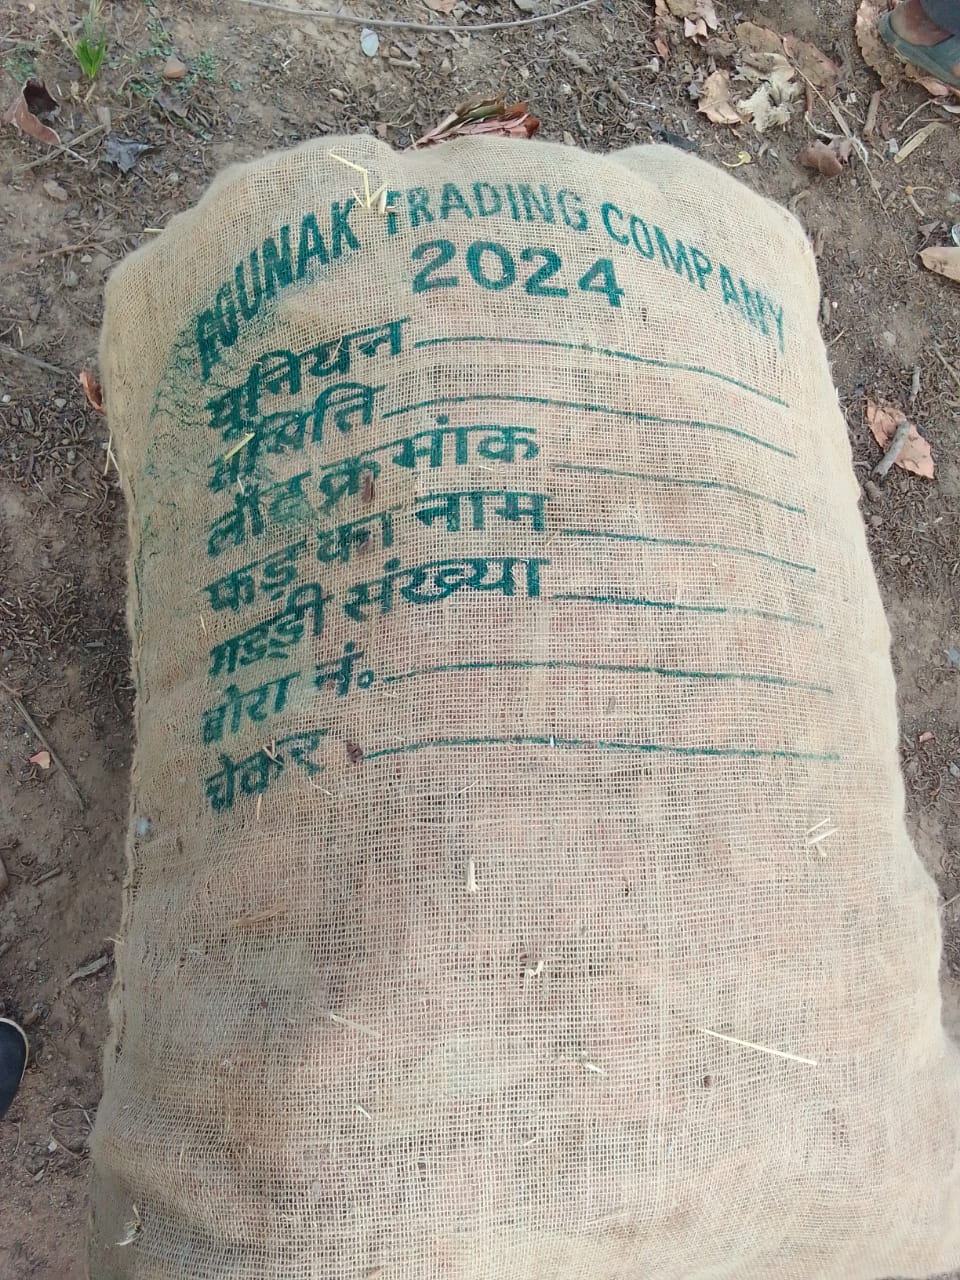 AGUNAK TRADING COMPANY
2024
यूनियन
समिति
लॉट क्रमांक
फड़ का नाम
गड्डी संख्या
बोरा नं.
चेकर